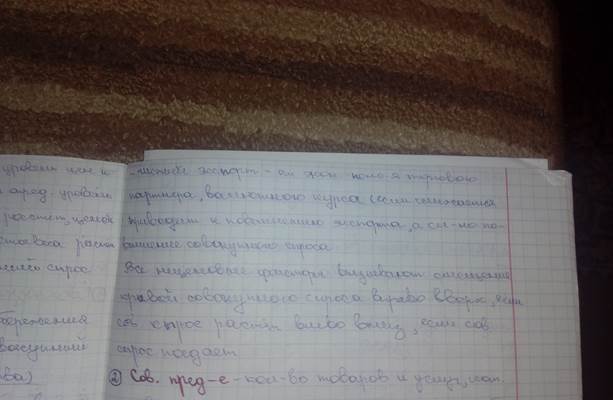 уровень цен и
пред. уровень
растет, целой
спрос
сбережения
ва)
экспорт - от экон. поло-я торговою
партнера, валютного курса (если снижается
приводит к повышению экспорта, а сл-но по-
вышение совокупного спроса
Все неценовые факторы вызывают смещение
кривой совокупного спроса вправо вверх, если
сов спрос растет, влево вниз, если сов.
спрос падает
② Сов. пред-е - кол-во товаров и услуг,